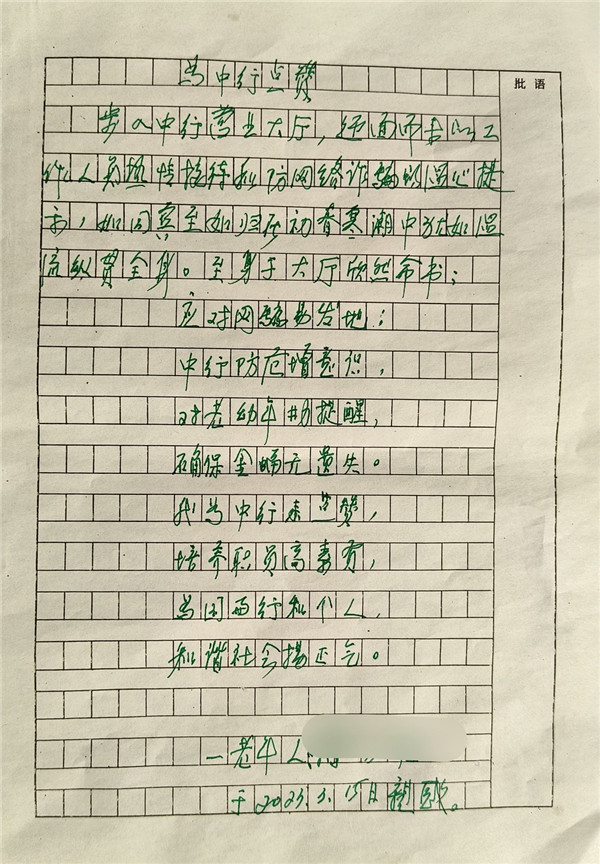 为中行点赞
批语
步入中行营业大厅,迎面而来的工
作人员热情接待和防网络诈骗的温心提
示,如同宾至如归在初春寒潮中犹如温
流纵贯全身。至身于大厅欣然命书:
应对网骗易发地;
中行防范增意识,
对老幼年勤提醒,
确保金融无遗失。
我为中行来点赞,
培养职员高素育,
为国为行和个人,
和谐社会扬正气。
一老年人:
于2023.3.15日